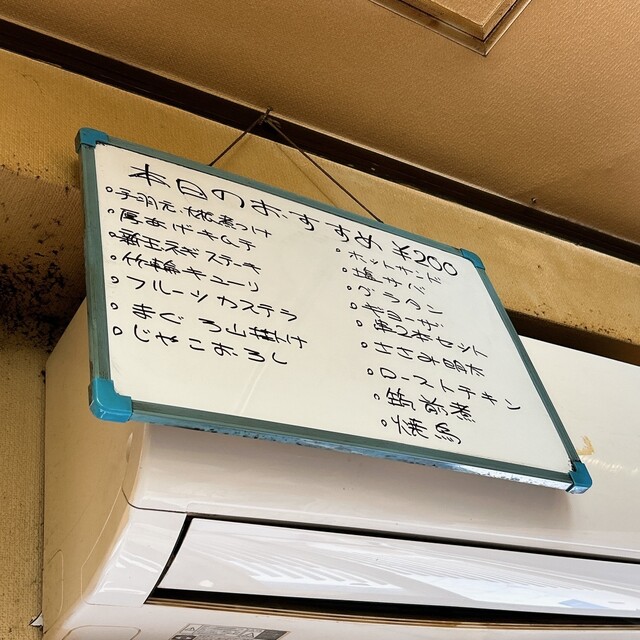 本日のおすすめ ¥200
・手羽元、桃煮つけ
・厚あげキムチ
・新玉ネギステーキ
・竹輪キューリ
・フルーツカステラ
・まぐろ山掛け
・じゃこおろし
・ホットサンド
・塩サバ
・グラタン
・ギョーザ
・第2本セット
・ささみ明太
・ローストチキン
・筑前煮
・焼鳥